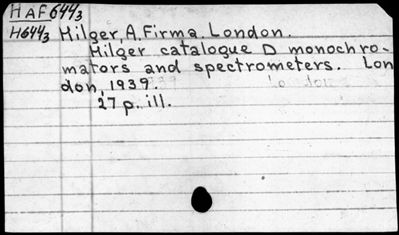 HAF 644/3
H644/3 Hilger, A. Firma. London.
Hilger catalogue D monochro-
mators and spectrometers. Lon
don, 1939.
27 p. ill.